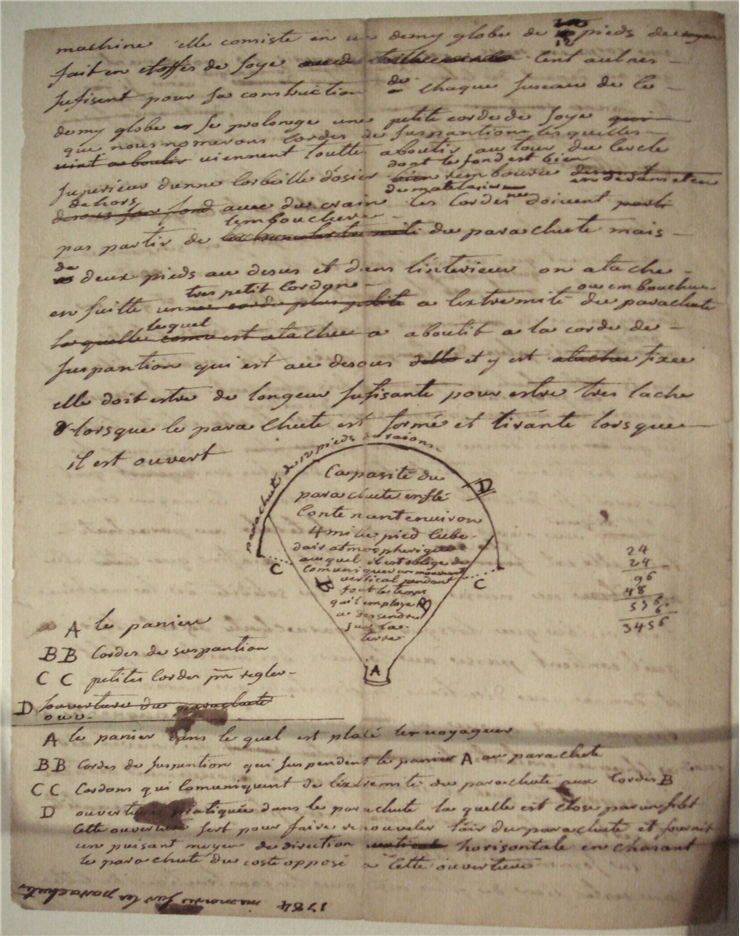 machine elle consiste en un demy globe de pieds de
fait en etoffes de soye tout autres
sufisent pour sa construction de chaque fuseau de ce
demy globe se prolonge une petite corde de soye
que nous nomerons cordes de suspantion les quelles
viennent toutte aboutir au tour du cercle
dont le fond est bien
superieur dunne corbeille dosier rembourée en dedans et en
dehors avec du crain les cordes ne doivent
lembouchere
pas partir de du parachute mais
de deux pieds au desus et dans l'interieur on atache
tres petit cordon ou embouchure
en suitte un a lextremité du parachute
lequel
aboutit a la corde de
suspantion qui est au desous et y est fixee
elle doit estre de longeur sufisante pour estre tres lache
lorsque le parachute est formé et tirante lorsque
il est ouvert
parachute de 12 pieds de raion
Capasité du
parachute enflé
Contenant environ
4 mille pied Cube
dair atmospherique
au quel il est obligé de
Comuniquer un mouvement
vertical pendant
tout le temps
qu'il employe
a desendre
sur la
terre
D
C
C
B
B
A
24
24
96
48
576
6
3456
A le paniere
BB Cordes de suspantion
CC petites Cordes pr regler
D louverture du parachute
ouv.
A le panier dans le quel est placé le voyageur
BB Cordes de suspention qui suspendent le panier A au parachute
CC Cordons qui Comuniquent de lextremité du parachute aux Cordes B
D ouverture pratiquée dans le parachute la quelle est close par un filet
Cette ouverture sert pour faire renouveler lair du parachute et fournit
un puisant moyen de direction horisontale en chasant
le parachute du costé opposé a Cette ouverture
1784 memoire sur les parachutes